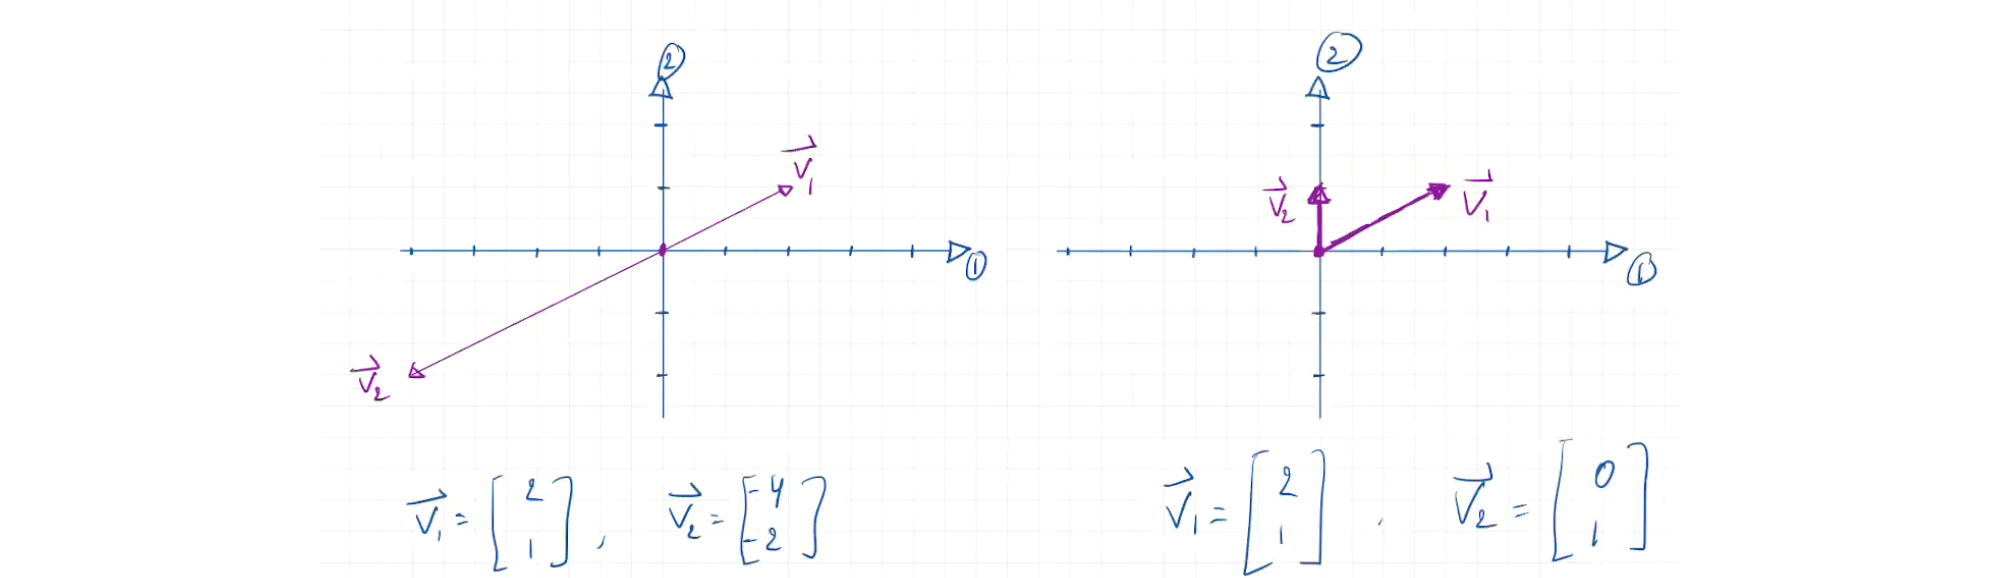 ② ②
v⃗₁ v⃗₂ v⃗₁
① ①
v⃗₂
v⃗₁ = [2 1], v⃗₂ = [-4 -2] v⃗₁ = [2 1], v⃗₂ = [0 1]